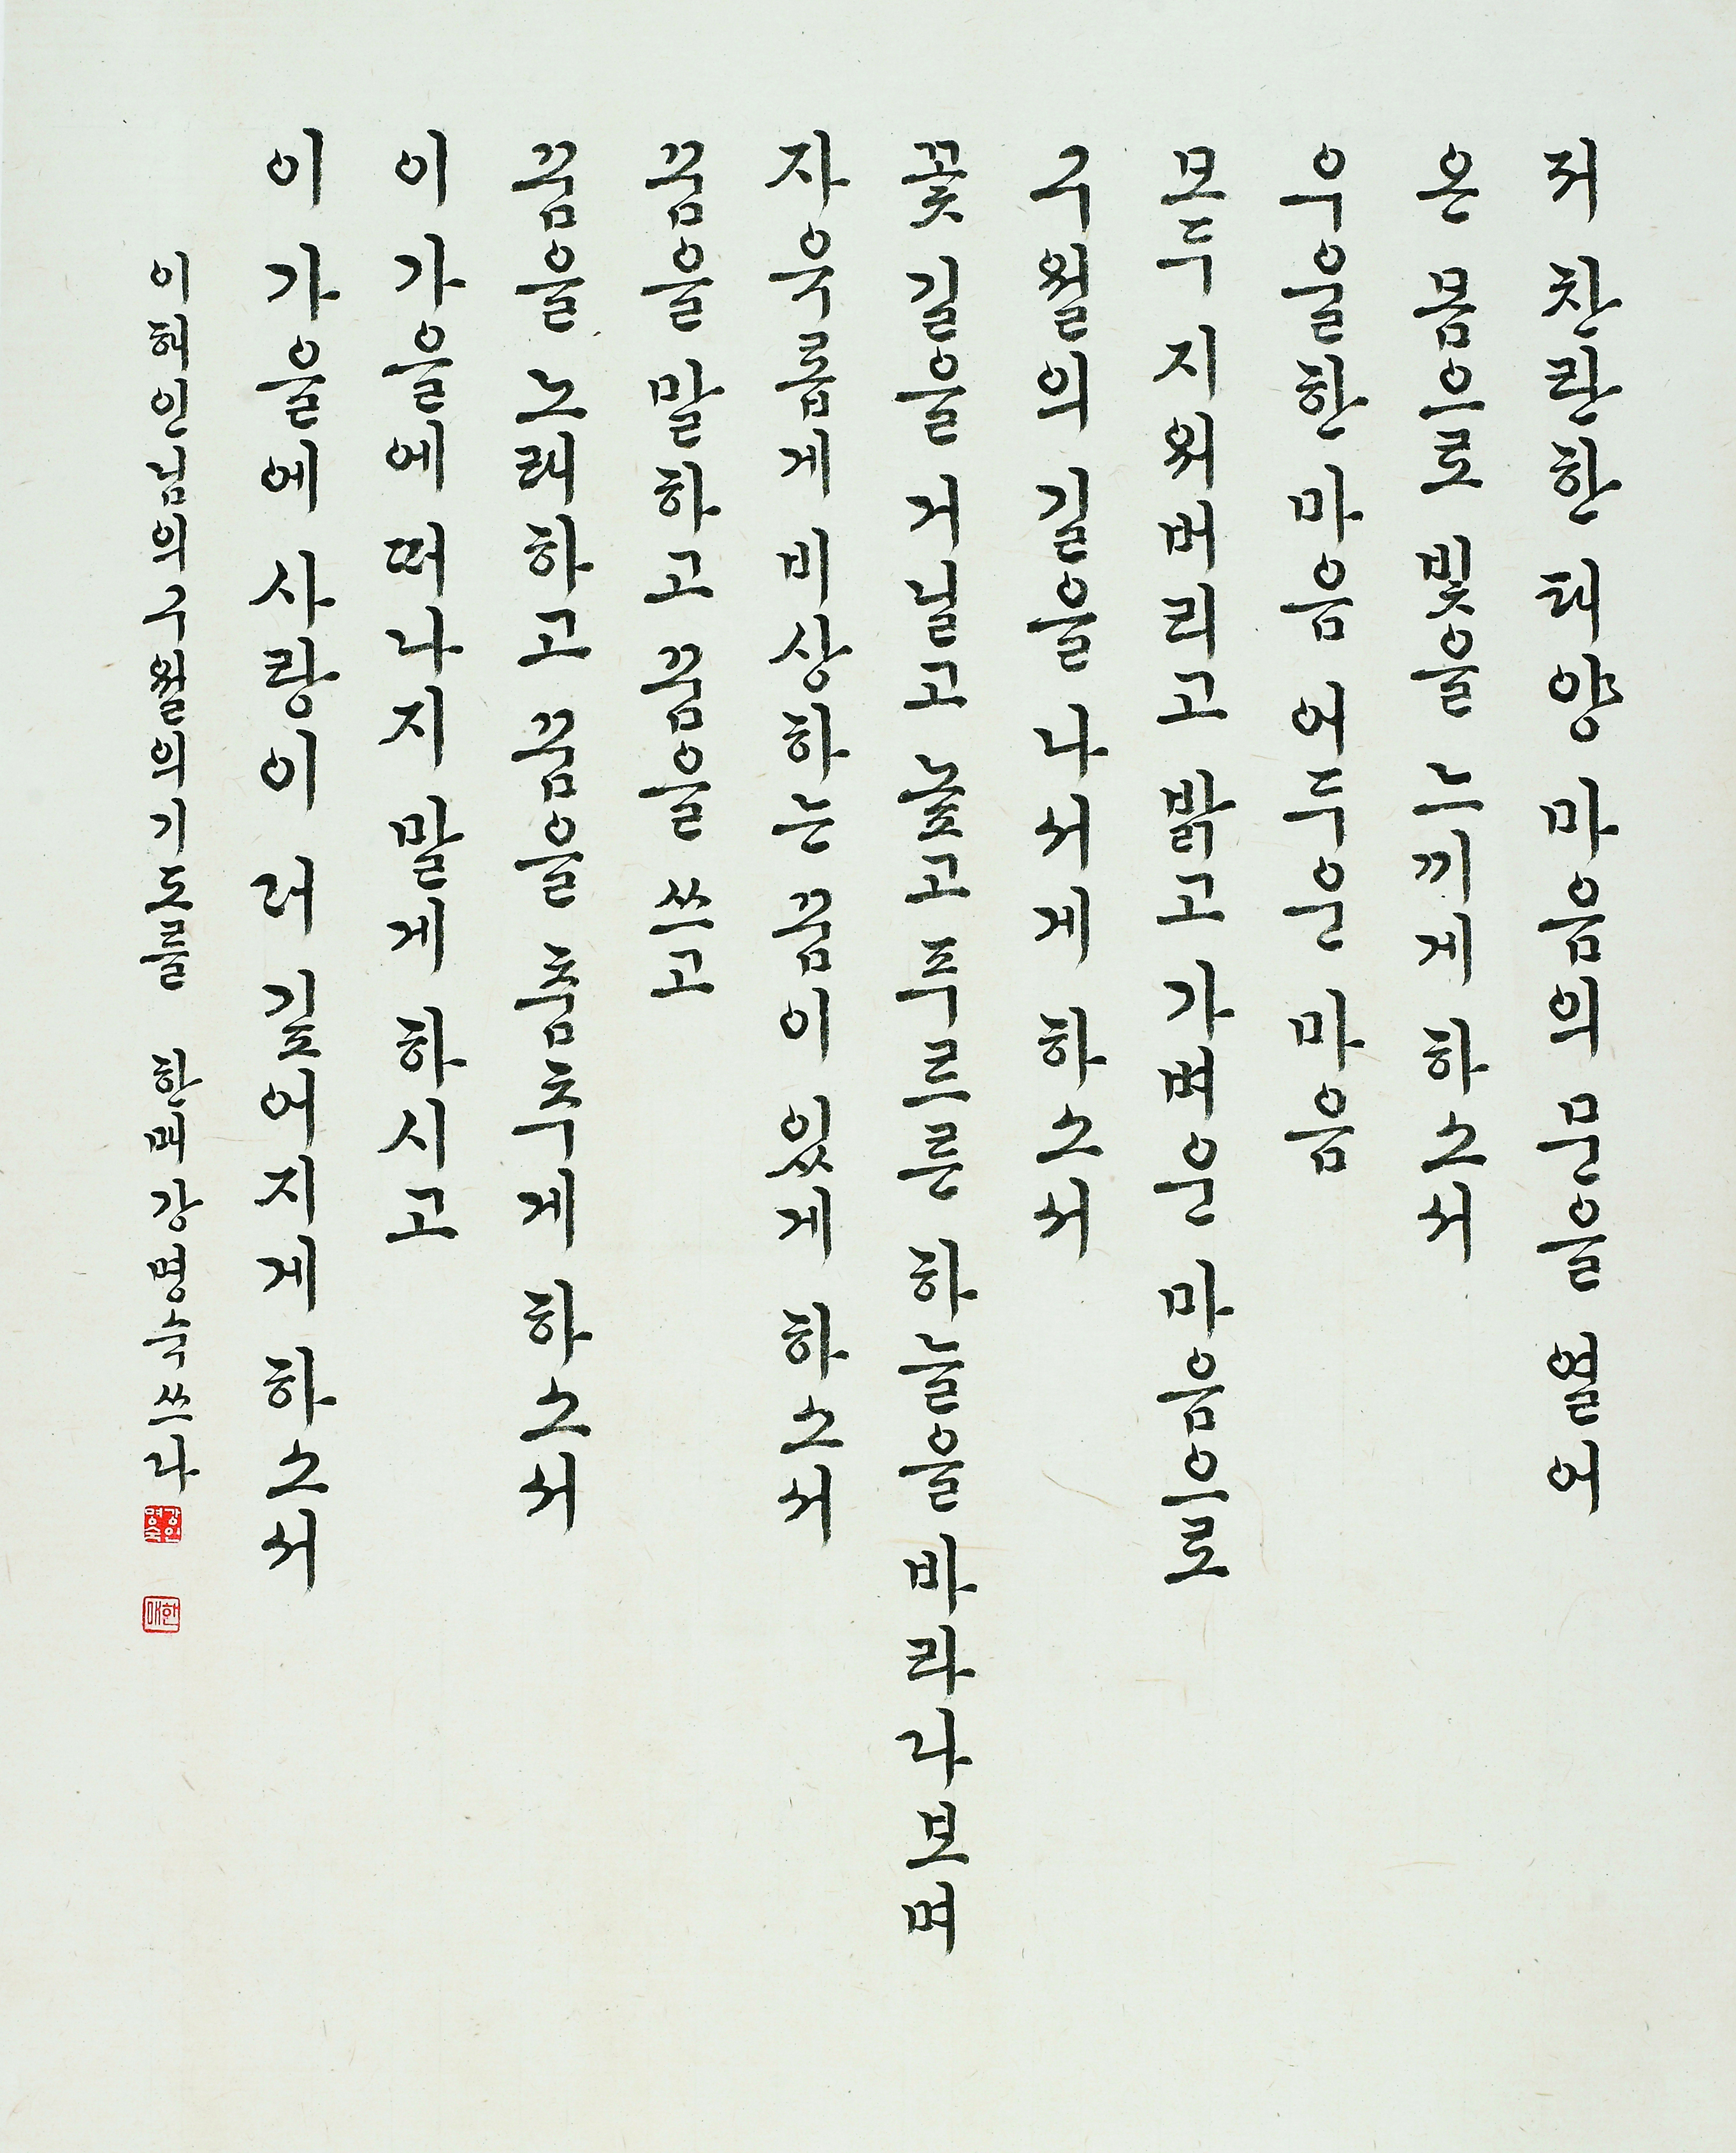 저 찬란한 태양 마음의 문을 열어
온 몸으로 빛을 느끼게 하소서
우울한 마음 어두운 마음
모두 지워버리고 밝고 가벼운 마음으로
구월의 길을 나서게 하소서
꽃 길을 거닐고 높고 푸르른 하늘을 바라다보며
자유롭게 비상하는 꿈이 있게 하소서
꿈을 말하고 꿈을 쓰고
꿈을 노래하고 꿈을 춤추게 하소서
이 가을에 떠나지 말게 하시고
이 가을에 사랑이 더 깊어지게 하소서
이해인님의 구월의 기도를 한매 강명숙 쓰다
강명숙인
한매